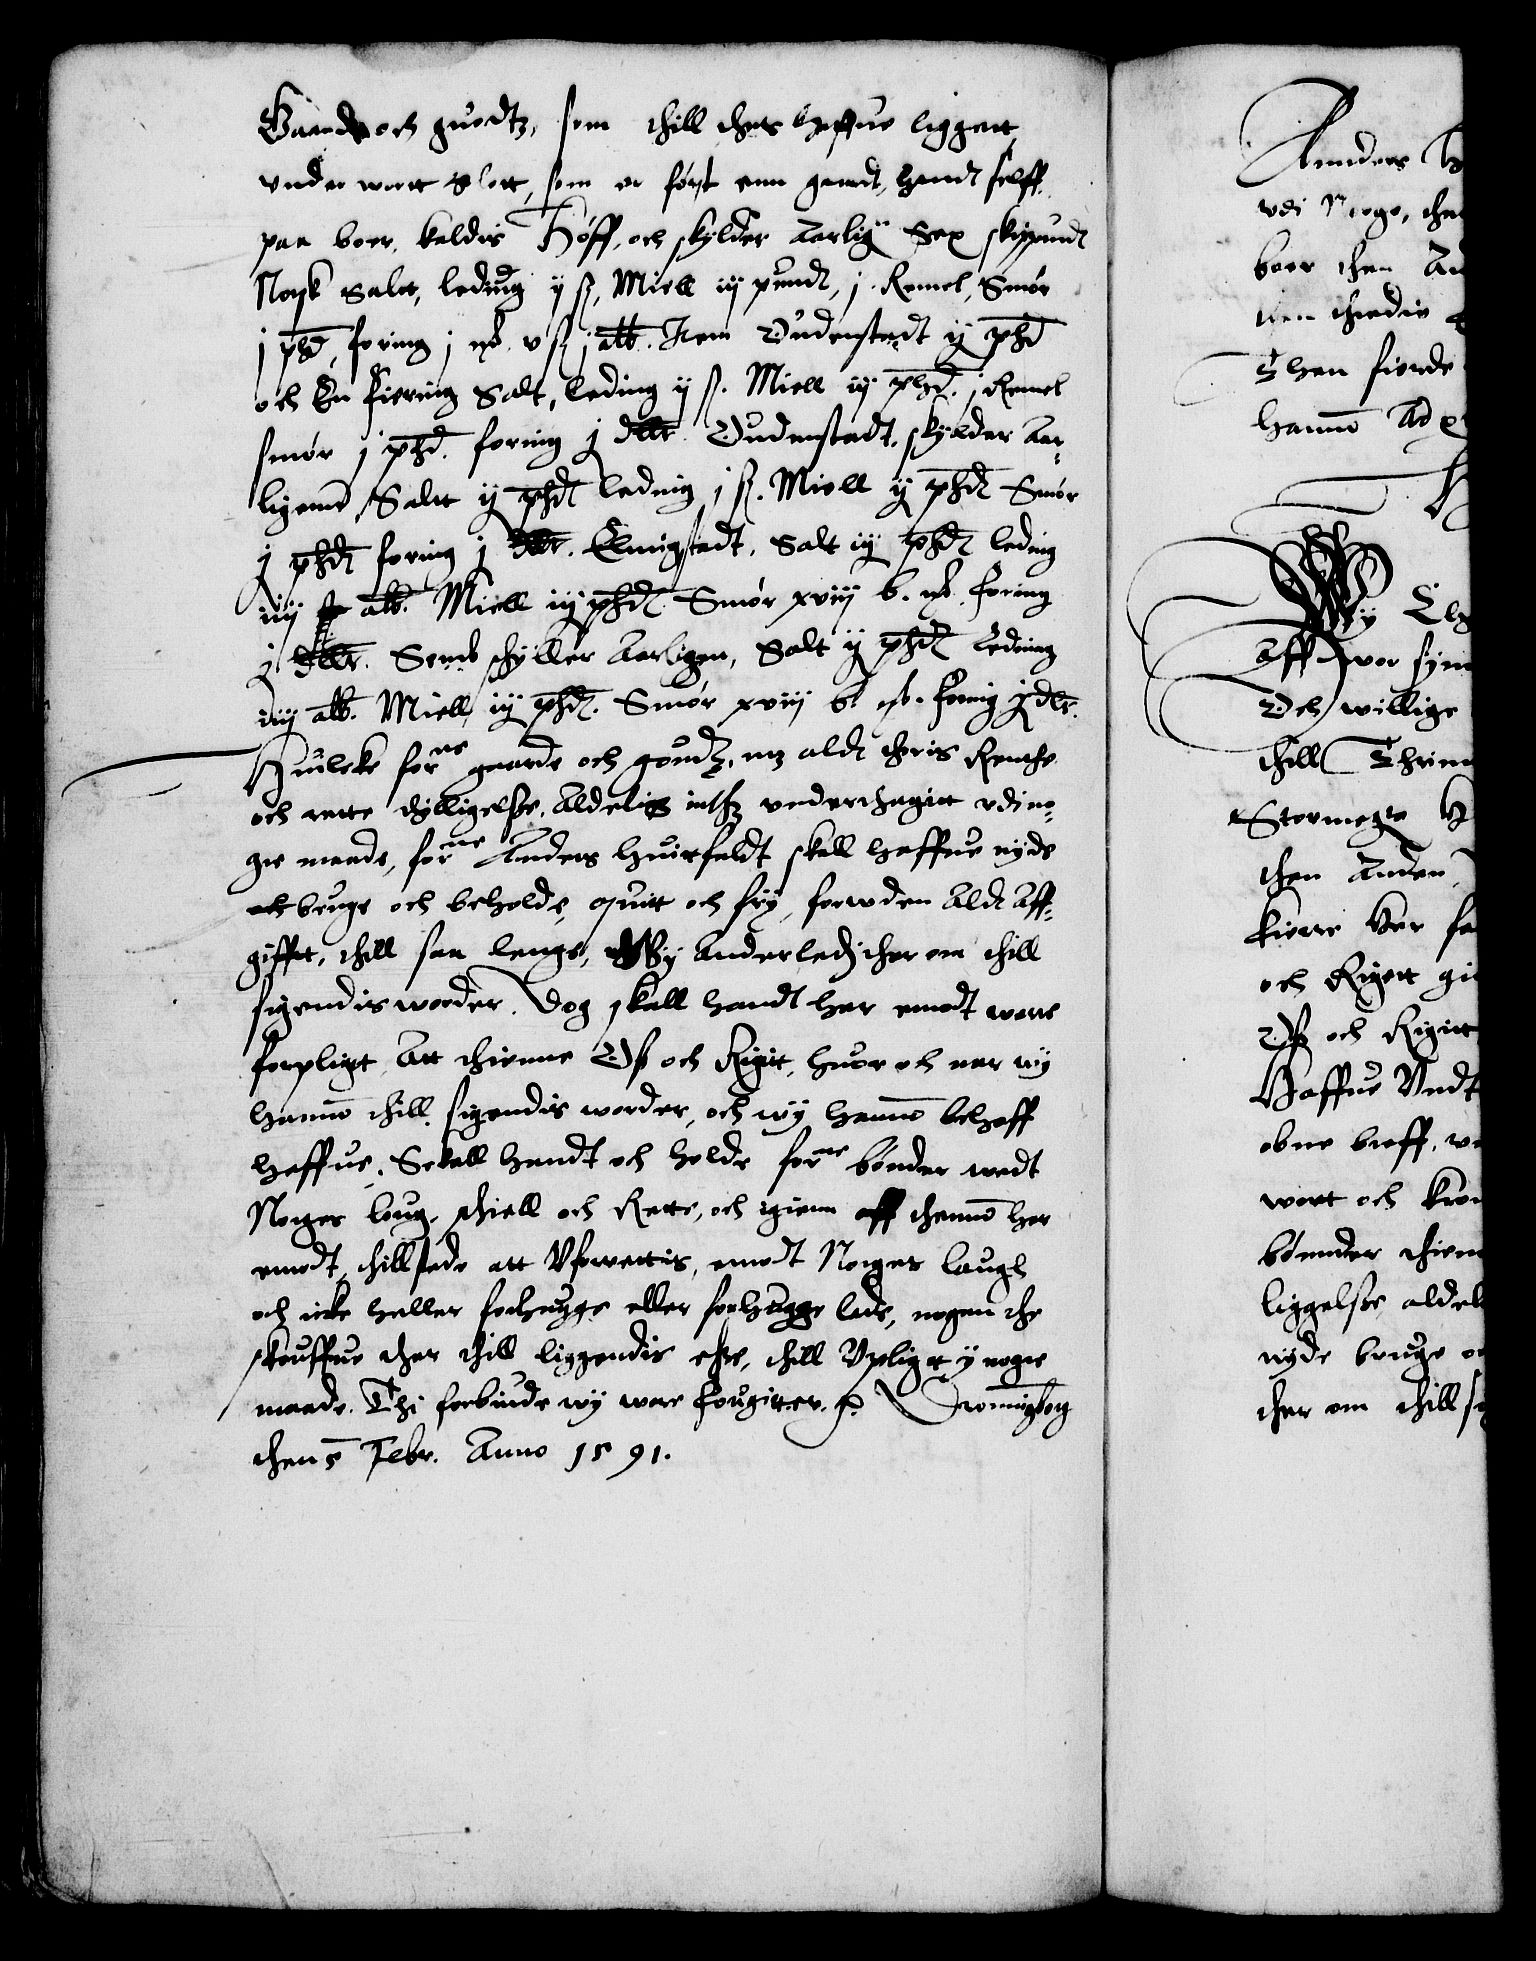 Gaarde och guodtz, som thill thes haffue liggett
vnder wortt Slott, som er først enn gaardt, handt selff
paa boer, kaldis Høff, och skylder Aarlig Sex skippundt
Norsk Salt, leding ij ß, Miell iij pundt, j. Remel, Smør
j phd, foring j mk. v ß j alb. Item Oudenstadt ij phd
och En fiering Salt, leding ij ß. Miell iij phd. j Remel
smør j phd. foring j dlr. Oudenstadt, skylder Aar¬
ligenn Salt ij phdt leding j ß. Miell ij phdt Smør
j phdt foring j dlr. Elmigstadt, Salt iij phdt leding
iiij alb. Miell iij phdt. Smør xviij b. mk. foring
j dlr. Semb schyller Aarligen, Salt ij phdt Leding
iiij alb. Miell iij phdt. Smør xviij b. mk. foring j dlr.
Huilcke forne gaarde och goudtz, mz aldt theris Renthe
och rette thilligelse, Aldelis inthz vnderthagitt vdi no¬
gre maade, forne Anders Huirfeldt skall haffue nyde
bruge och beholde, quitt och frij, foruden Aldt Aff¬
gifft, thill saa lenge, Wij Anderledis ther om thill
sigendis worder. Dog skall handt her emodt were
forpligt Att thienne Oß och Rigitt, huor och naar wij
hannom thill sigendis worder, och wij hannom behoff
haffue, Skall handt och holde forne bønder wedt
Norges loug, skiell och Rette, och ingenn aff thennom her
emodt, thillstede att Vforrettis, emodt Norges laugh
och icke heller forhugge eller forhugge lade, nogen the
skouffue ther thill liggendis ehre, thill Vpligt ij nogre
maade. Thi forbiude wij wore fougitter, p. Dronningborg
then 5 Febr. Anno 1591.
Annders H
vdi Norge, the
boer then An
Then fierde
hannom Ad
Wij Els
Aff wor synn
Och willige
thill Thrinn
Stormegte H
then Anden,
kierre Her fa
och Rigett gi
Oß och Rigitt
Haffue Vndt
obne breff, vn
wort och kron
bønnder thien
liggelse aldel
nyde bruge oc
ther om thill si